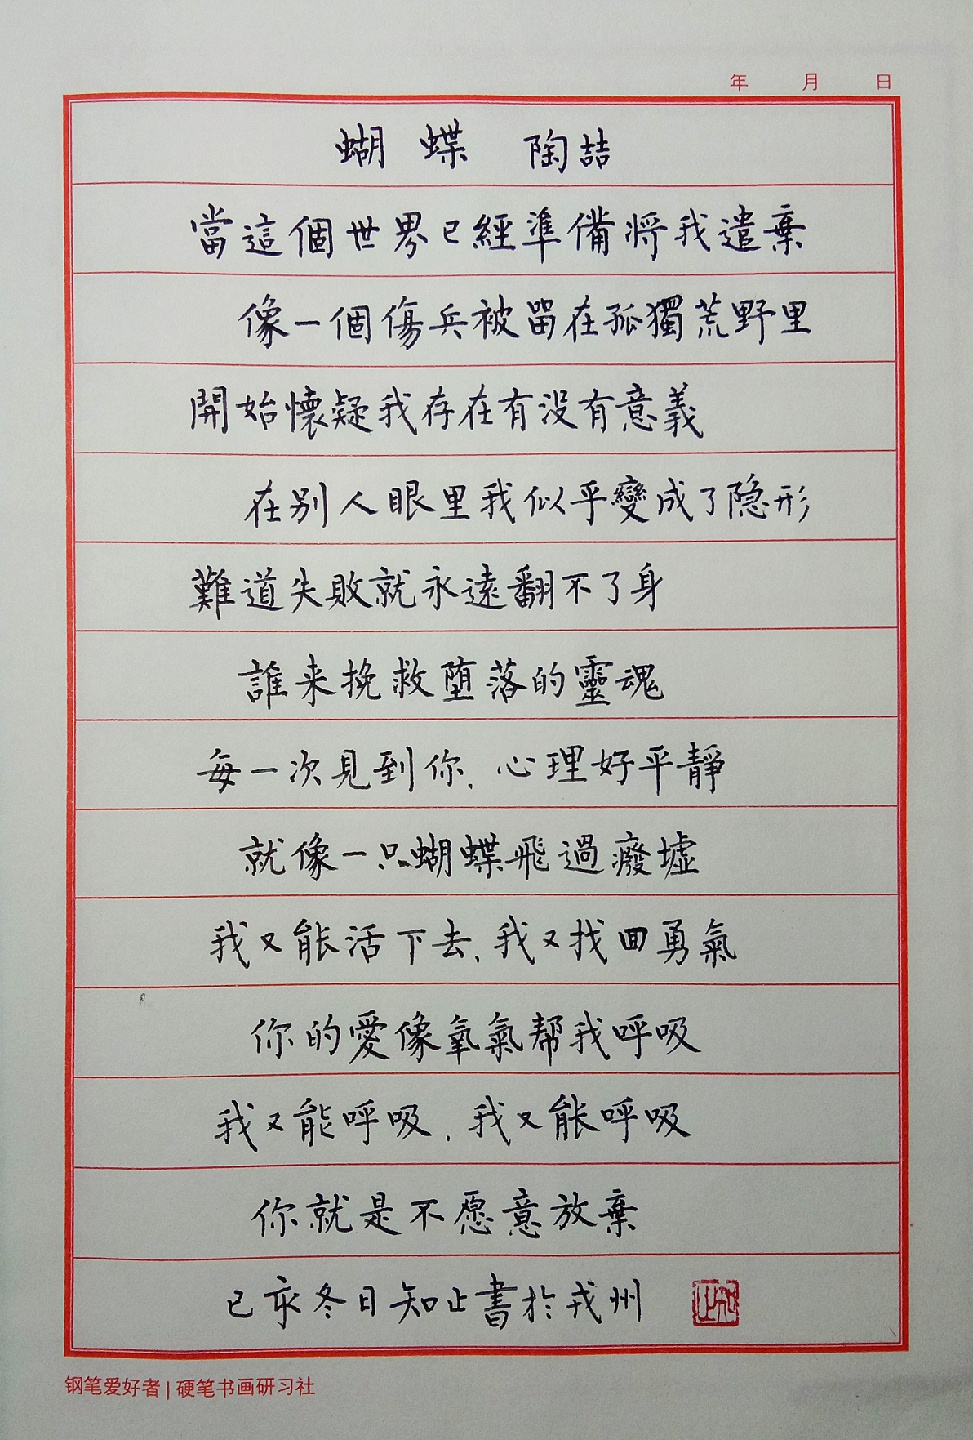 年 月 日
蝴蝶 陶喆
當這個世界已經準備將我遣棄
像一個傷兵被留在孤獨荒野里
開始懷疑我存在有没有意義
在别人眼里我似乎變成了隐形
難道失敗就永遠翻不了身
誰来挽救堕落的靈魂
每一次見到你.心理好平靜
就像一只蝴蝶飛過癈墟
我又能活下去.我又找回勇氣
你的愛像氧氣帮我呼吸
我又能呼吸.我又能呼吸
你就是不愿意放棄
己亥冬日知止書於戎州
知止
钢笔爱好者|硬笔书画研习社